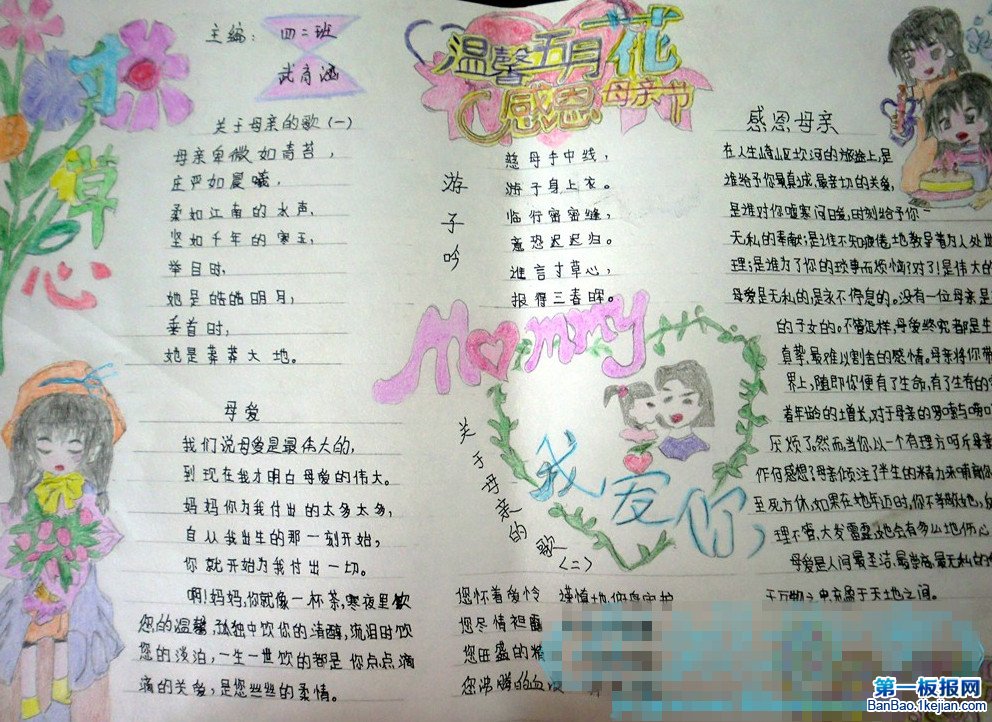 主编：四二班
武育涵
温馨五月花
感恩母亲节
寸草心
关于母亲的歌（一）
母亲卑微如青苔，
庄严如晨曦，
柔如江南的水声，
坚如千年的寒玉，
举目时，
她是皓皓明月，
垂首时，
她是莽莽大地。
母爱
我们说母爱是最伟大的，
到现在我才明白母爱的伟大。
妈妈你为我付出的太多太多，
自从我出生的那一刻开始，
你就开始为我付出一切。
啊！妈妈，你就像一杯茶，寒夜里饮
您的温馨，孤独中饮你的清醇，流泪时饮
您的淡泊，一生一世饮的都是你点点滴
滴的关爱，是您丝丝的柔情。
游子吟
慈母手中线，
游子身上衣。
临行密密缝，
意恐迟迟归。
谁言寸草心，
报得三春晖。
Mommy
我爱你，
关于母亲的歌（二）
您怀着爱怜
您尽情袒露
您旺盛的精
您沸腾的血液
感恩母亲
在人生崎山区坎河的旅途上，是
谁给予你最真诚、最亲切的关爱，
是谁对你嘘寒问暖，时刻给予你
无私的奉献；是谁不知疲倦地教导着为人处世
理；是谁为了你的琐事而烦恼？对了！是伟大的
母爱是无私的，是永不停息的。没有一位母亲是
的子女的。不管怎样，母爱终究都是生
真挚、最难以割舍的感情。母亲将你带
界上，随即你便有了生命，有了生存的
着年龄的土曾长，对于母亲的罗嗦与唠叨
厌烦了。然而当你以一个有理方呵斥母亲
作何感想？母亲倾注了半生的精力来哺育你
至死方休，如果在她年迈时，你不孝敬她，
理不睬，大发雷霆，她会有多么地伤心
母爱是人间最圣洁、最崇高、最无私的
于万物之中，充盈于天地之间。
第一板报网
BanBao.1kejian.com